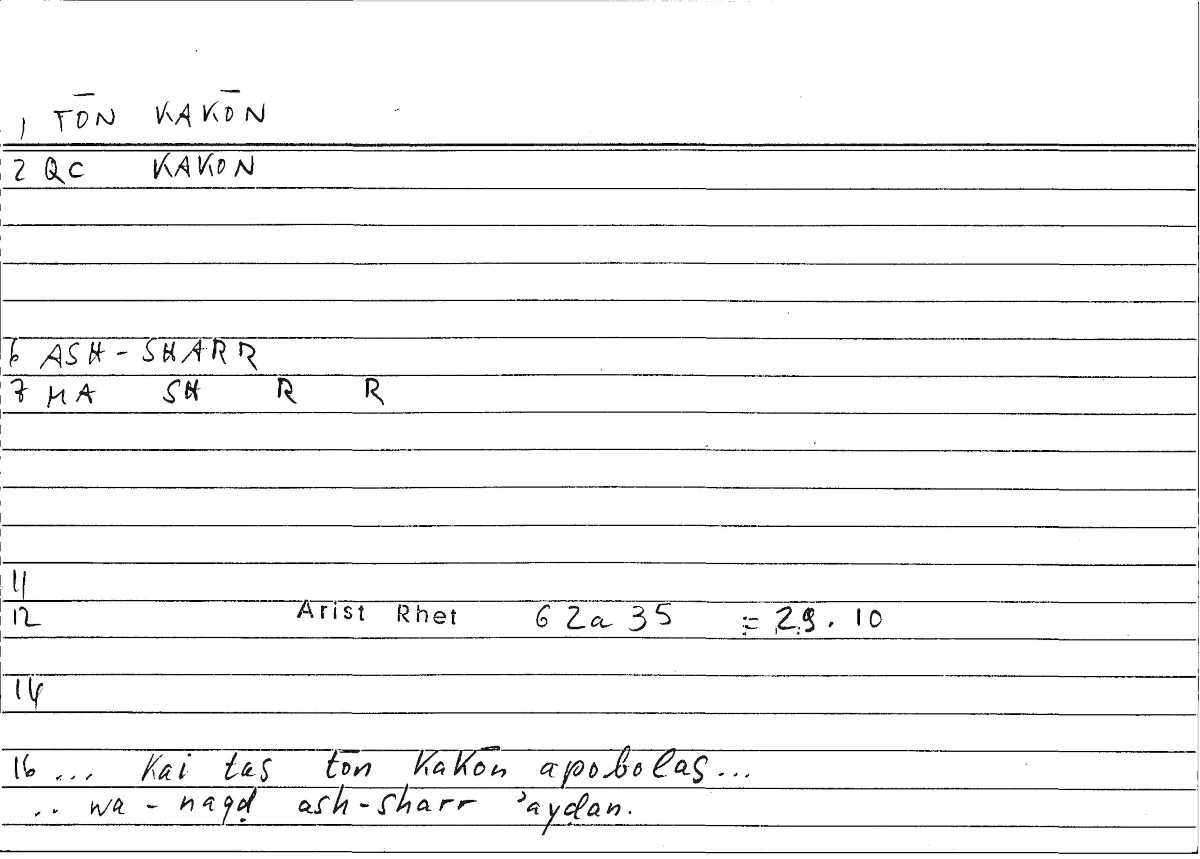 1 TŌN KAKŌN
2 QC KAKON
6 ASH-SHARR
7 MA SH R R
11
12 Arist Rhet 62a35 = 29.10
14
16 ... kai tas tōn kakōn apobolas...
.. wa-naqḍ ash-sharr ʾayḍan.